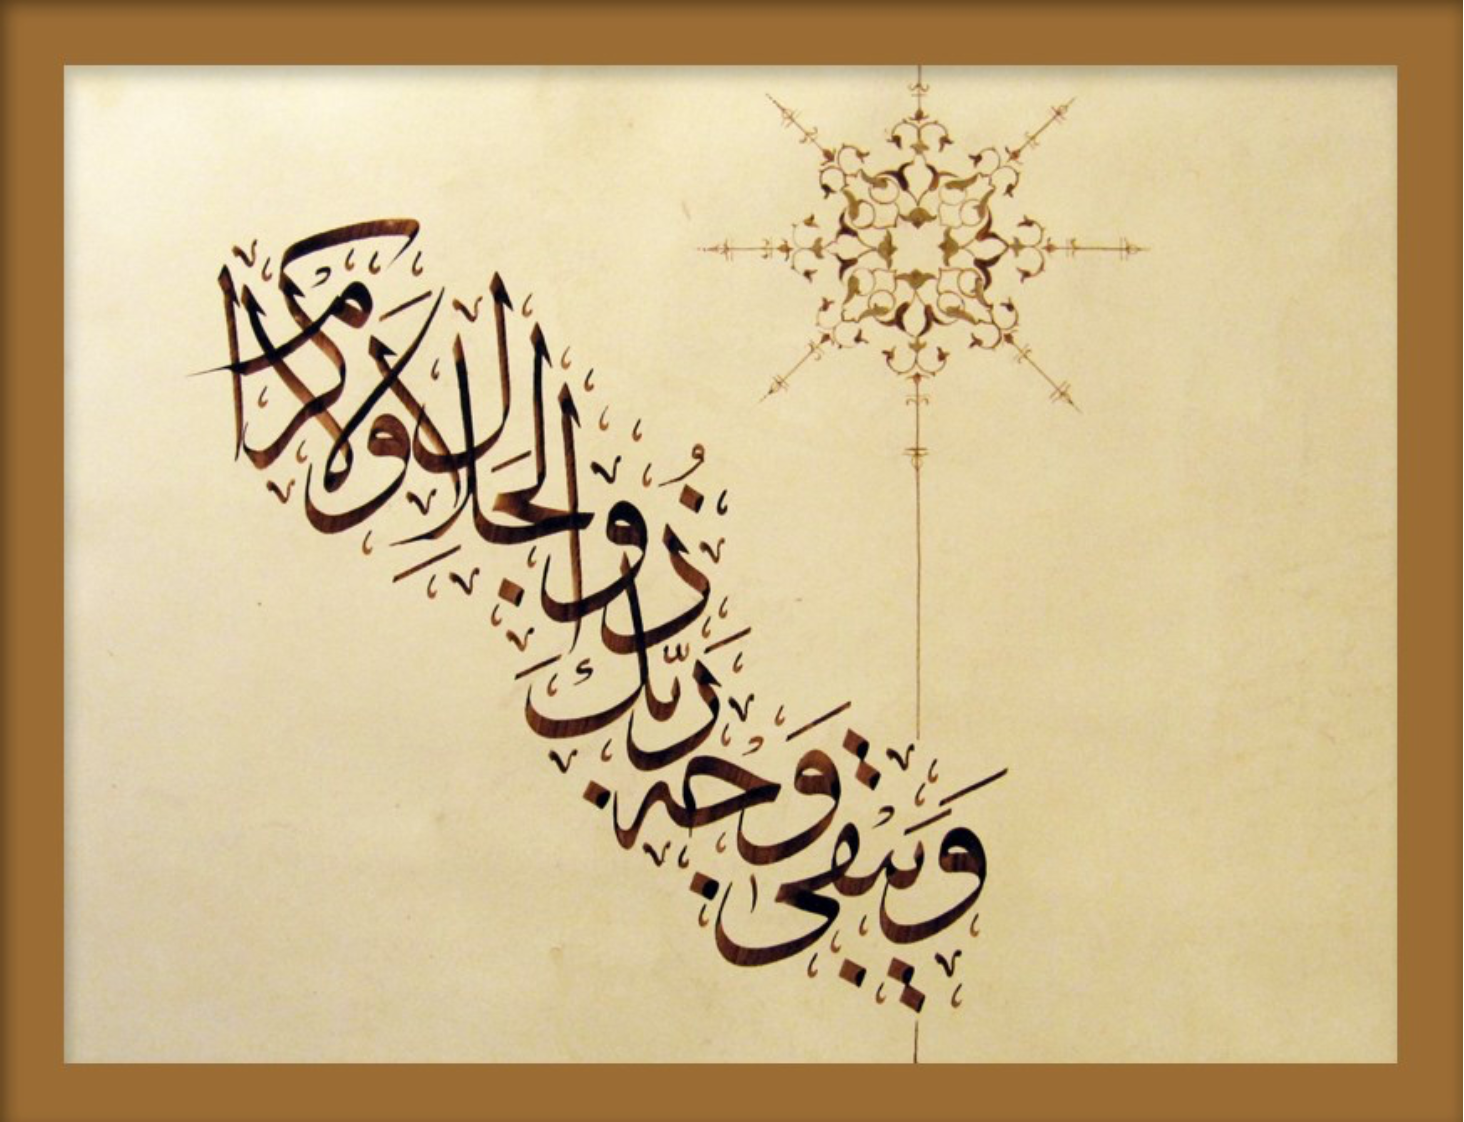 وَيَبْقَىٰ وَجْهُ رَبِّكَ ذُو الْجَلَالِ وَالْإِكْرَامِ